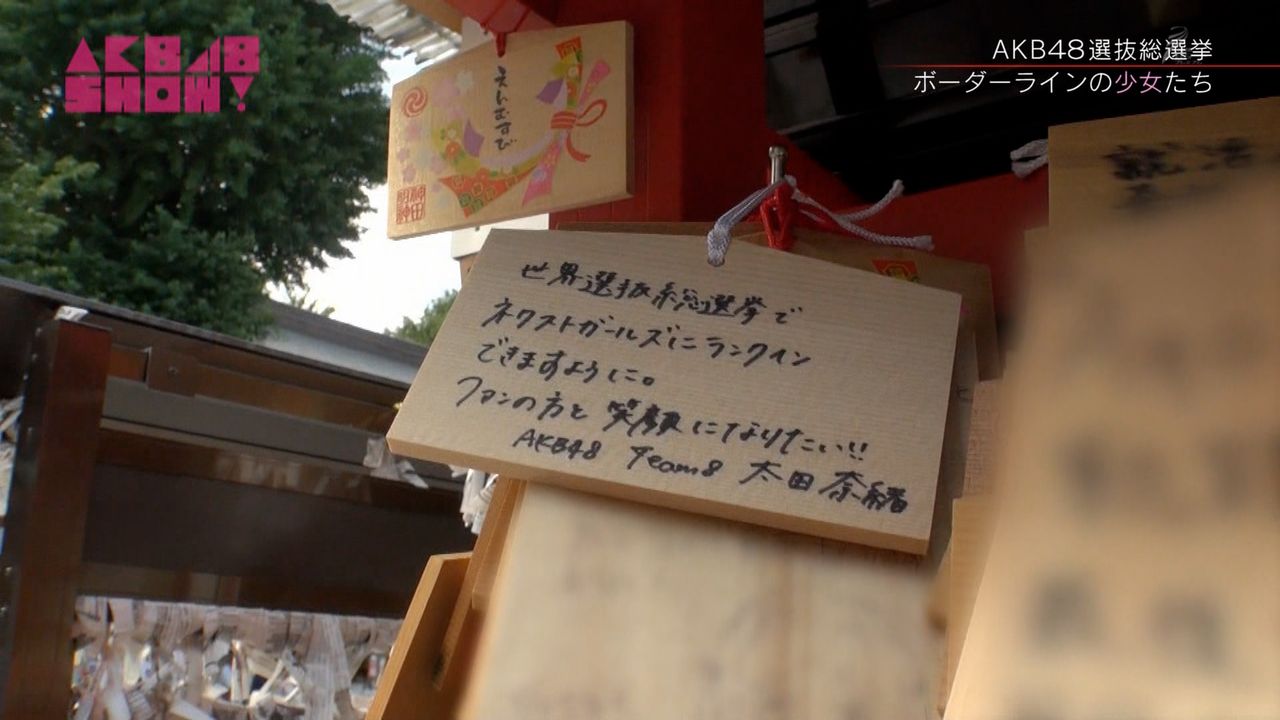 AKB48
SHOW!
AKB48選抜総選挙
ボーダーラインの少女たち
えんむすび
神田
明神
世界選抜総選挙で
ネクストガールズにランクイン
できますように。
ファンの方と笑顔になりたい!!
AKB48 Team8 太田奈緒